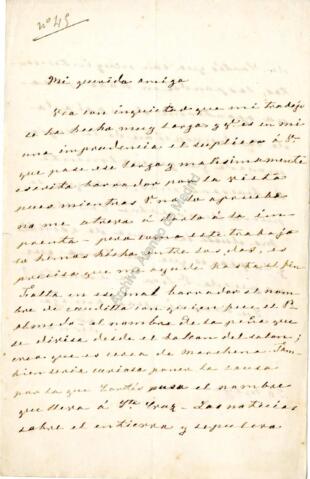 nº 45
Mi querida amiga
Veo con inquietud que mi trabajo
se ha hecho muy largo y qe. es en mi
una imprudencia el suplicar á V.
que pase ese largo y malisimamente
escrito borrador por la vista
pues mientras V. no lo aprueba
no me atrevo á darlo á la im-
prenta - pero como este trabajo
lo hemos hecho entre las dos, es
preciso que me ayude hasta el fin
Falta en ese mal borrador el nombre
de caudillo con quien fue el P.
Olmedo, el nombre de la peña que
se divisa desde el balcon del salon;
creo que es cosa de Marchena. Tam-
bien seria curioso poner la causa
por la que Cortés puso el nombre
que lleva á Va. Cruz - Las noticias
sobre el entierro y sepultura
Archivo Alonso